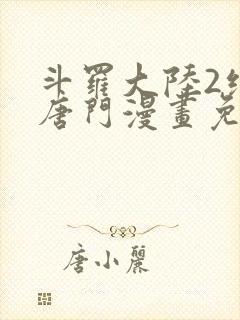 斗羅大陸2
唐門漫畫免
唐小麗